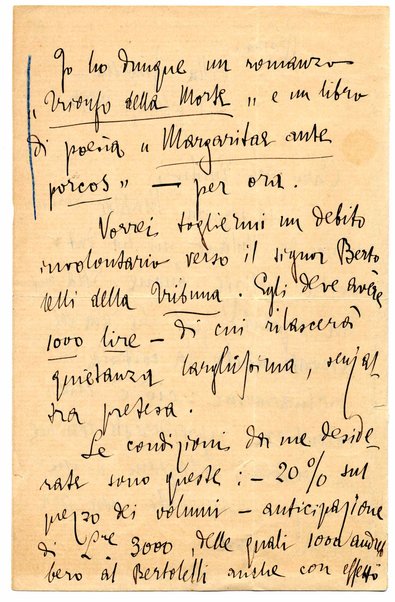 Io ho dunque un romanzo
"Trionfo della Morte" e un libro
di poesia "Margaritas ante
porcos" — per ora.
Vorrei togliermi un debito
involontario verso il signor Berto
lelli della Tribuna. Egli deve avere
1000 lire — di cui rilascerà
quietanza larghissima, senz'al-
tra pretesa.
Le condizioni da me deside
rate sono queste: — 20% sul
prezzo dei volumi — anticipazione
di L.re 3000, delle quali 1000 andreb
bero al Bertolelli anche con effetto